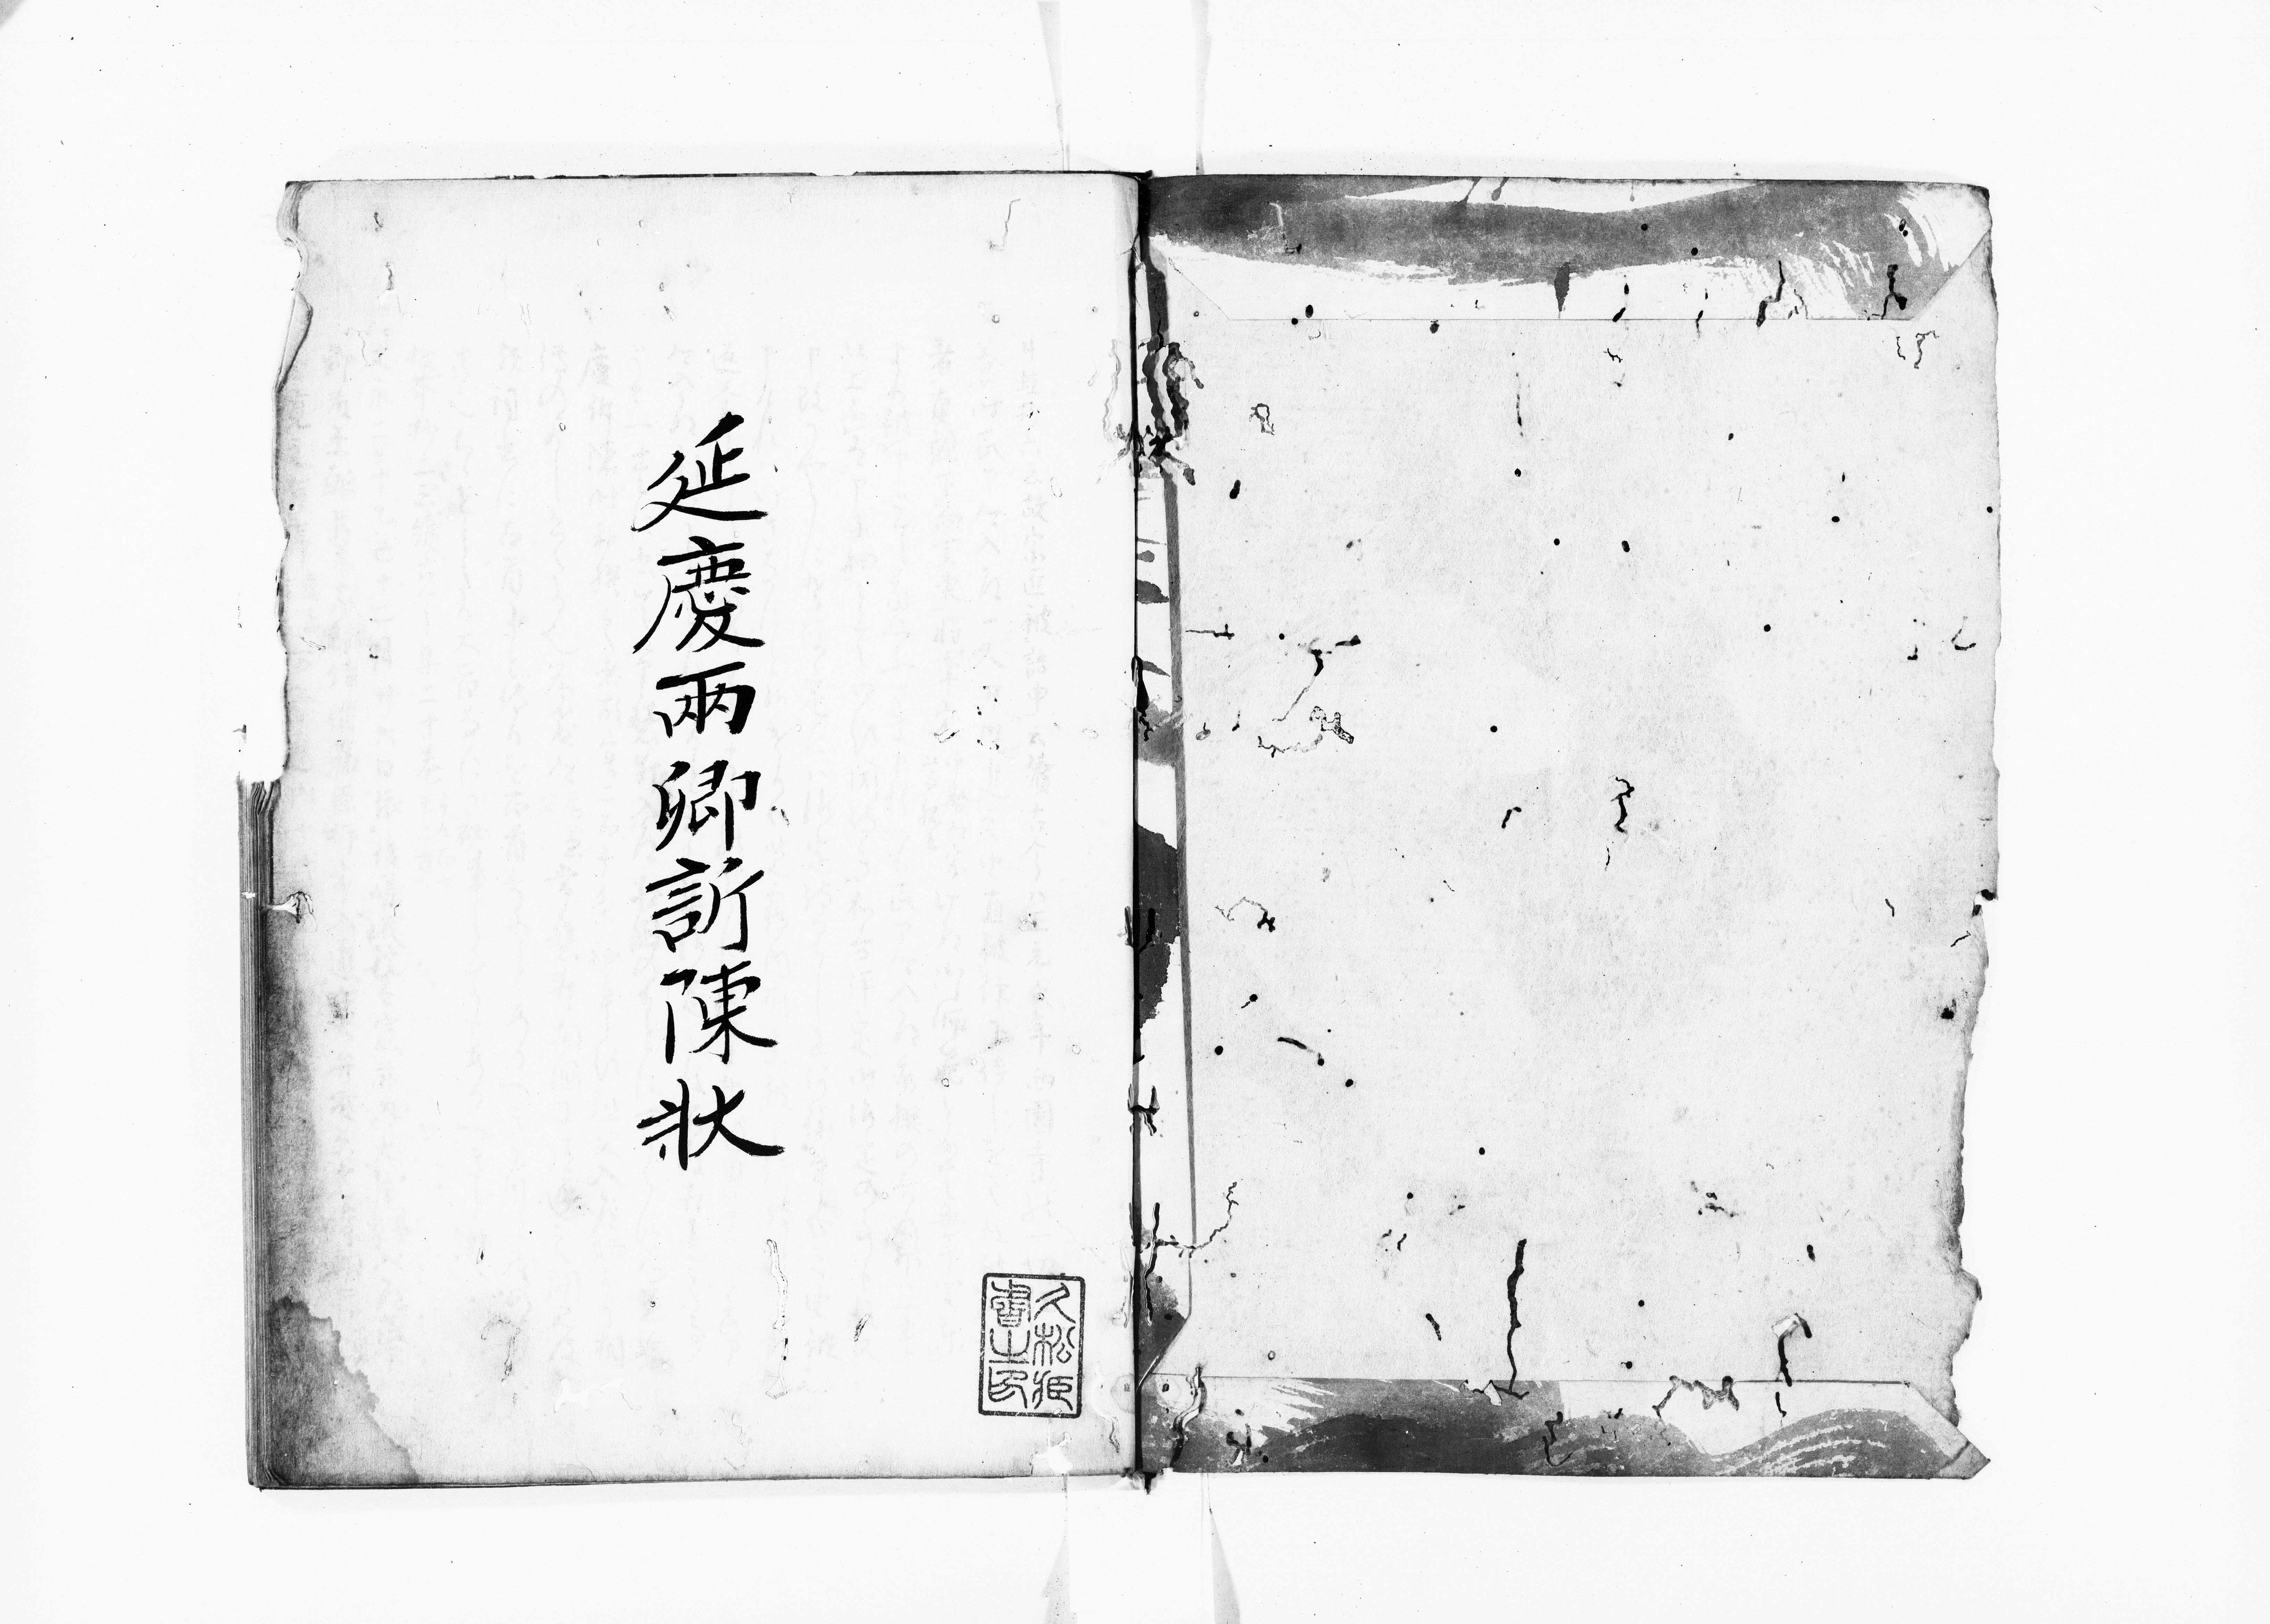 延慶兩卿訴陳狀
久松姫
書之印